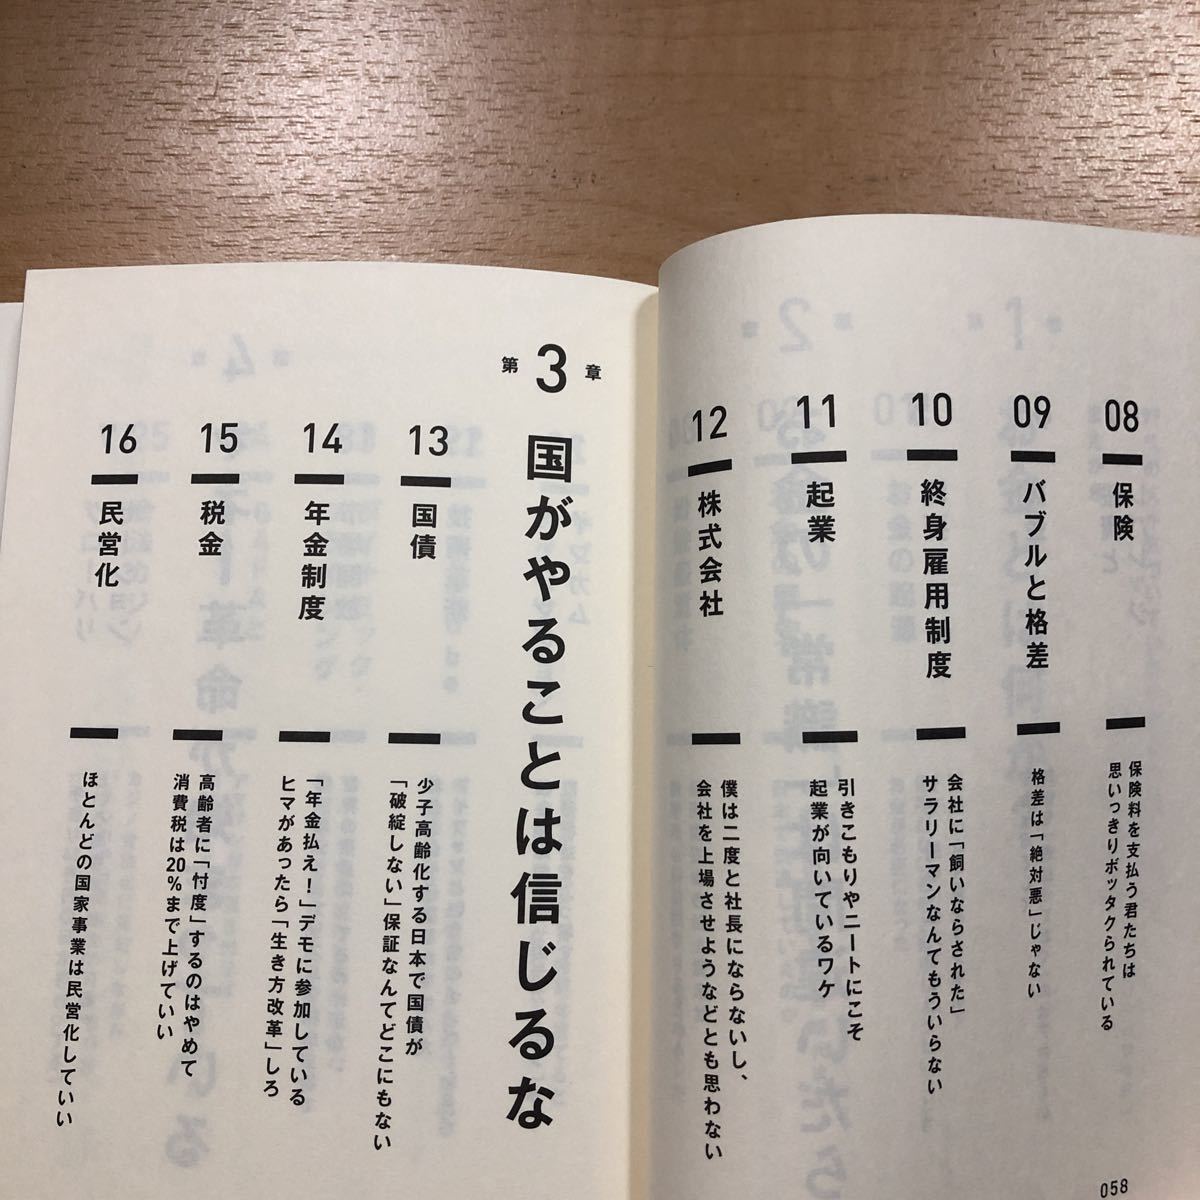 08
保険
保険料を支払う君たちは
思いっきりボッタクられている
09
バブルと格差
格差は「絶対悪」じゃない
10
終身雇用制度
会社に「飼いならされた」
サラリーマンなんてもういらない
11
起業
引きこもりやニートにこそ
起業が向いているワケ
12
株式会社
僕は二度と社長にならないし、
会社を上場させようなどとも思わない
058
第3章
国がやることは信じるな
13
国債
少子高齢化する日本で国債が
「破綻しない」保証なんてどこにもない
14
年金制度
「年金払え!」デモに参加している
ヒマがあったら「生き方改革」しろ
15
税金
高齢者に「忖度」するのはやめて
消費税は20%まで上げていい
16
民営化
ほとんどの国家事業は民営化していい